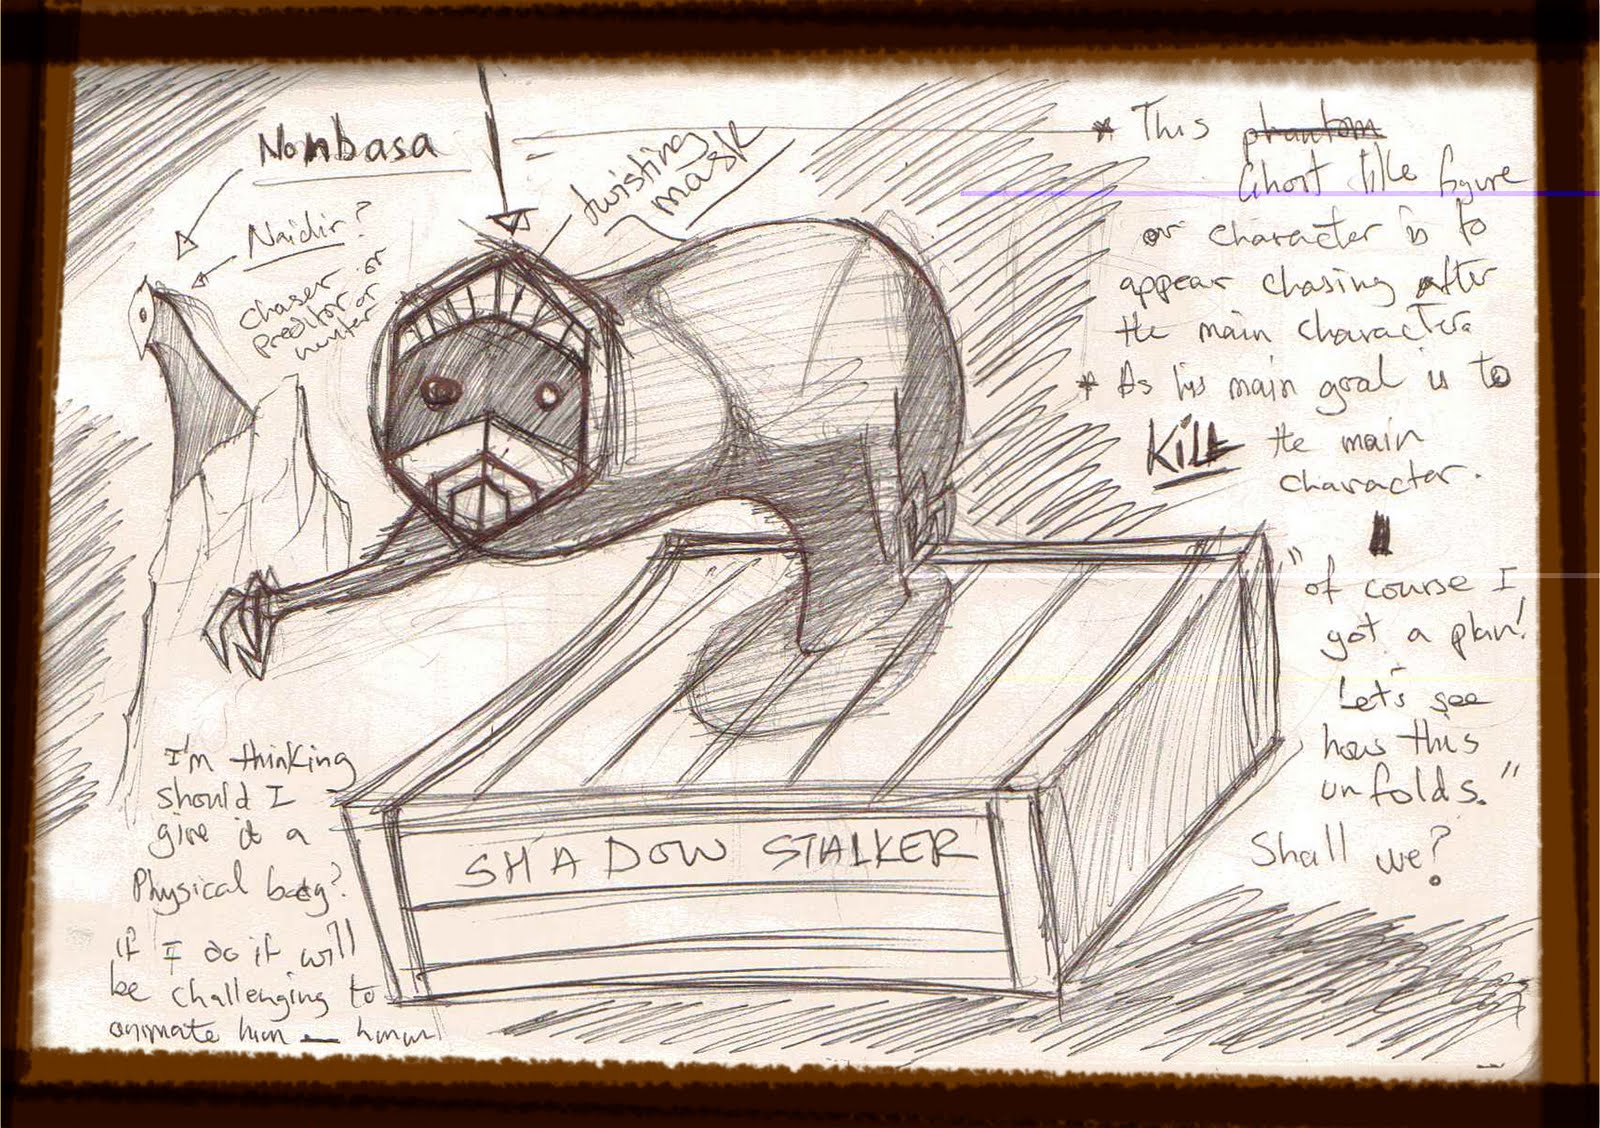 Nonbasa
Naidir?
chaser or
preditor or
hunter
twisting
mask
* This phantom
Ghost like figure
or character is to
appear chasing after
the main character.
* As his main goal is to
KILL the main
character.
"of course I
got a plan!
Let's see
how this
unfolds."
Shall we?
SHADOW STALKER
I'm thinking
should I
give it a
Physical body?
if I do it will
be challenging to
animate him —